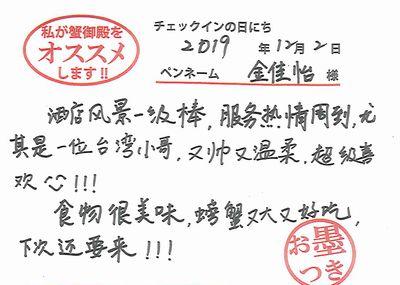 私が蟹御殿を
オススメ
します!!
チェックインの日にち
2019 年 12 月 2 日
ペンネーム 金佳怡 様
酒店风景一级棒,服务热情周到,尤
其是一位台湾小哥,又帅又温柔,超级喜
欢!!!
食物很美味,螃蟹又大又好吃,
下次还要来!!!
お墨
つき